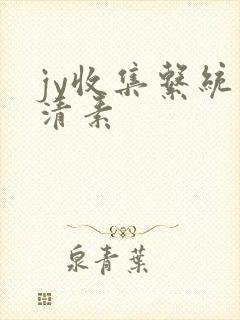 jy收集繫統
清素
泉青葉